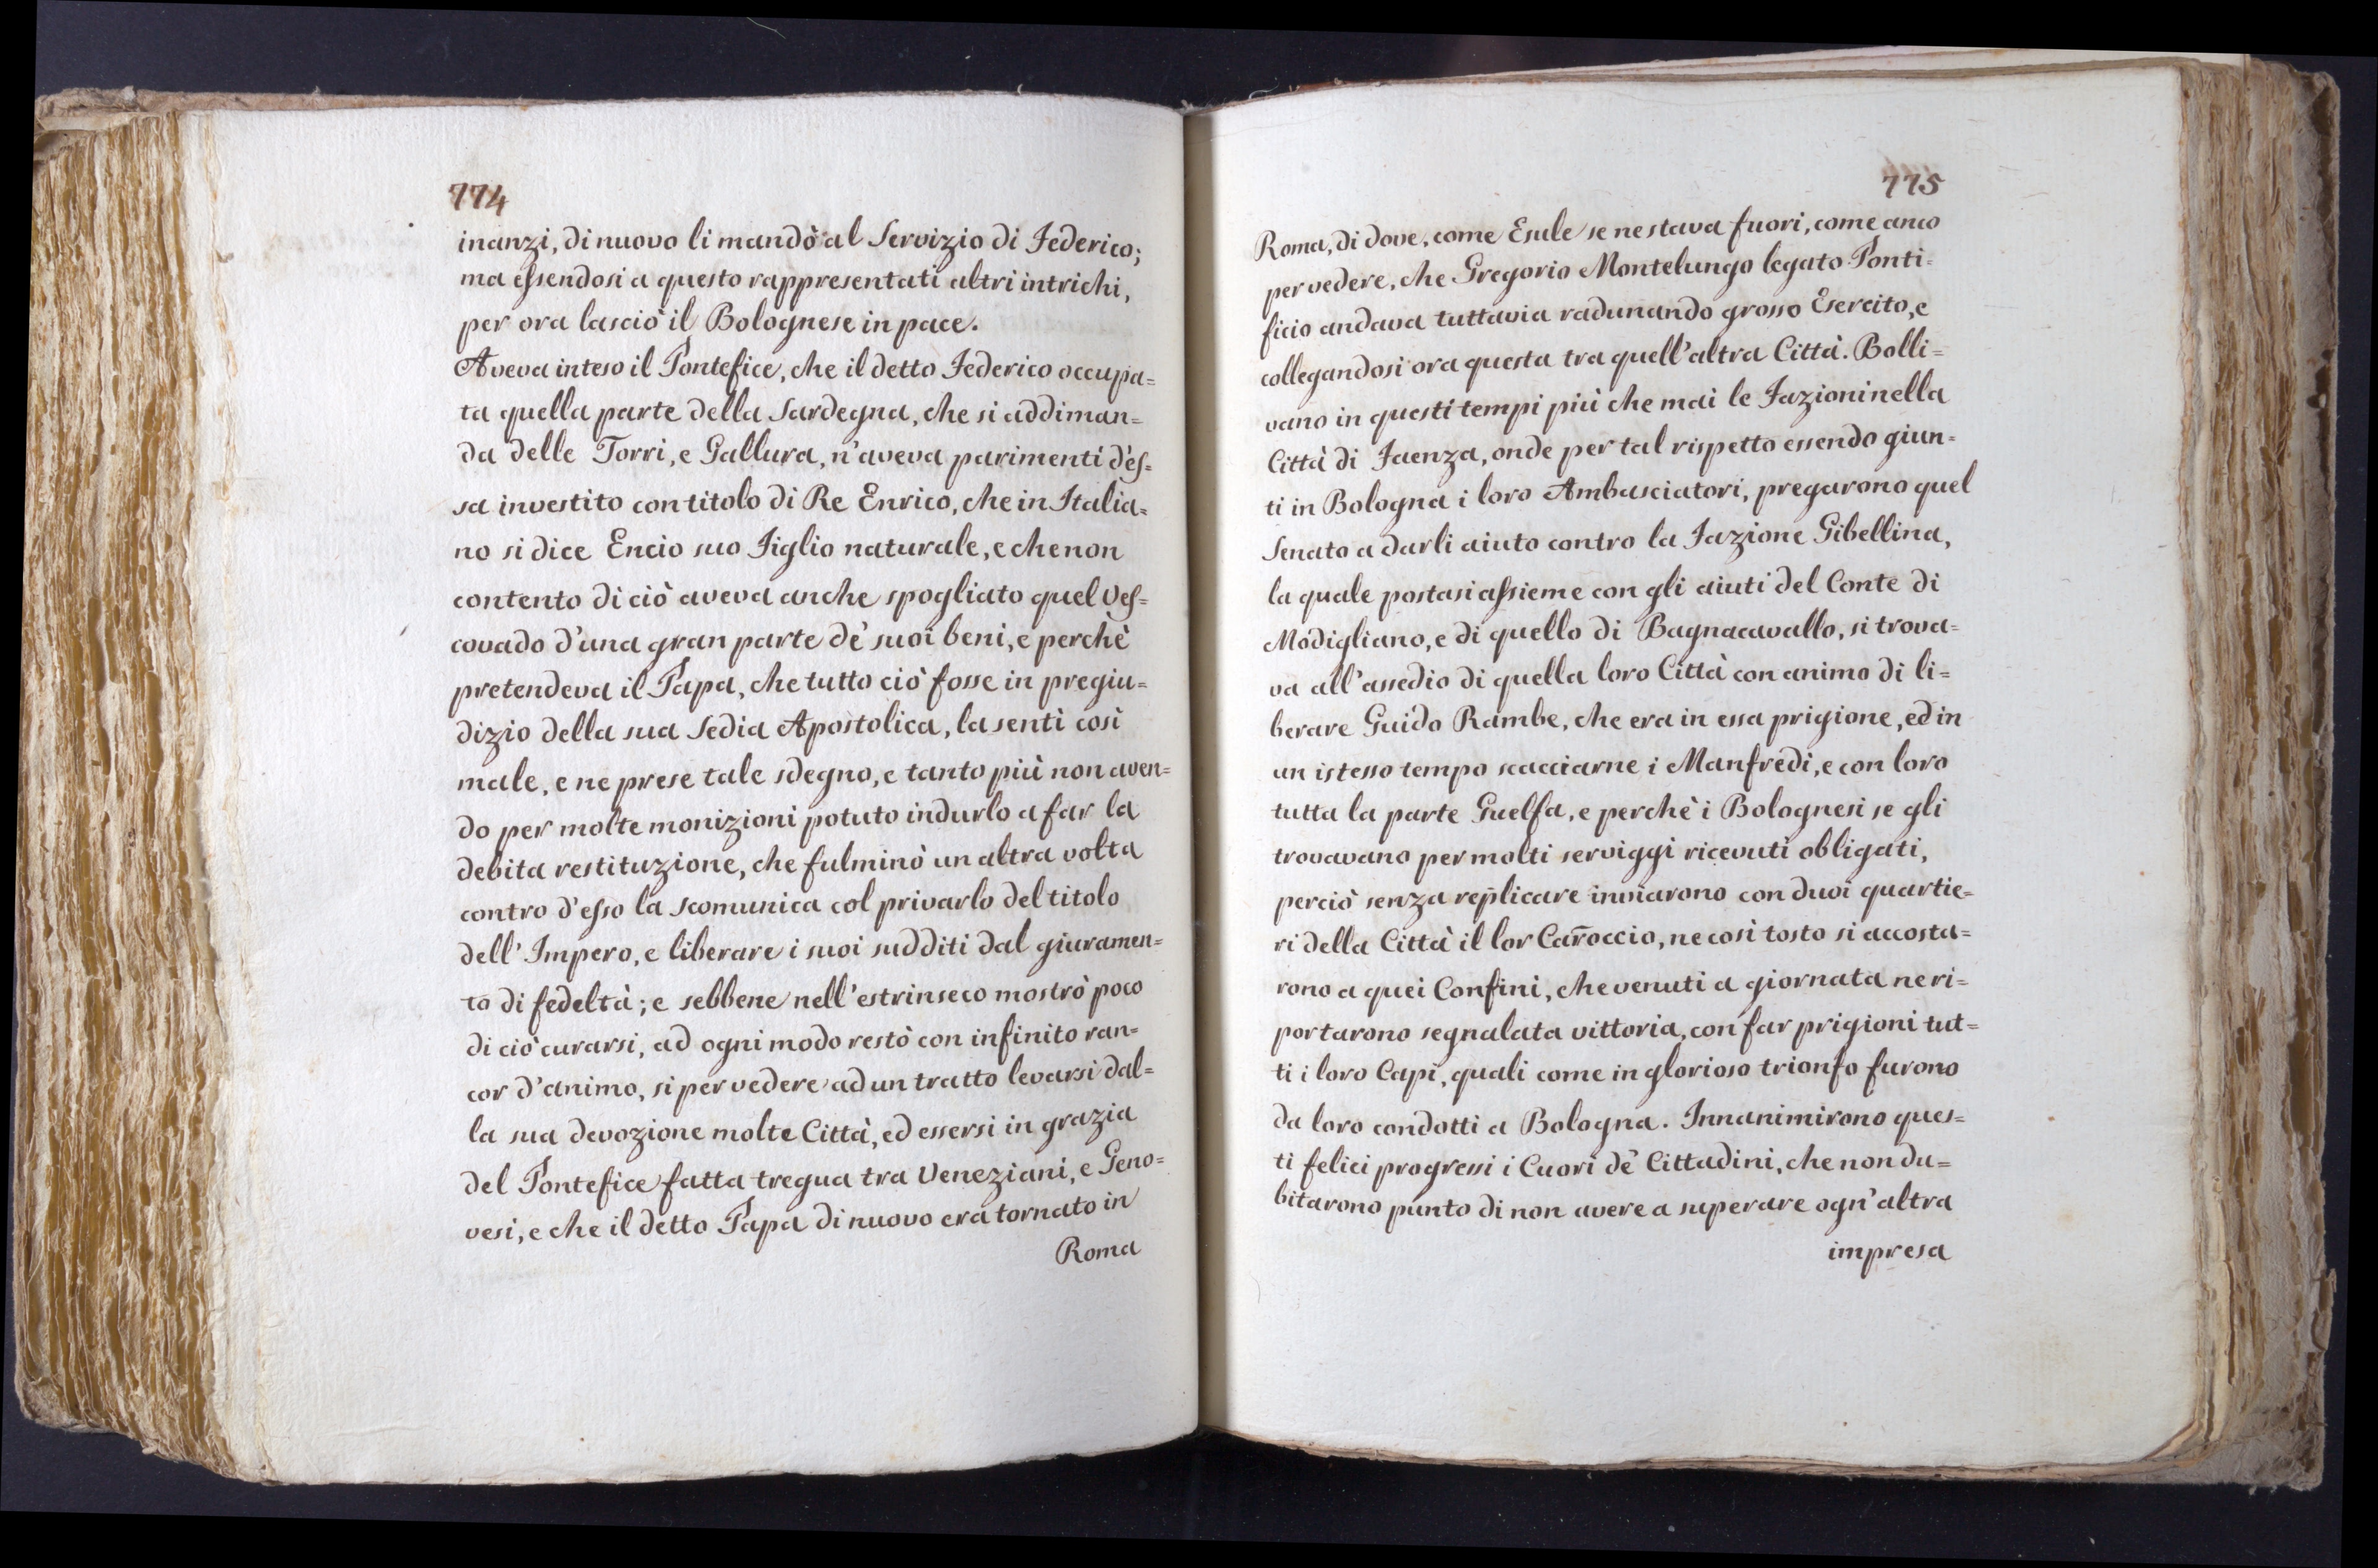 774
inanzi, di nuovo li mandò al Servizio di Federico;
ma essendosi a questo rappresentati altri intrichi,
per ora lasciò il Bolognese in pace.
Aveva inteso il Pontefice, che il detto Federico occupa=
ta quella parte della Sardegna, che si addiman=
da delle Torri, e Gallura, n'aveva parimenti d'es=
sa investito con titolo di Re Enrico, che in Italia=
no si dice Encio suo Figlio naturale, e che non
contento di ciò aveva anche spogliato quel Ves=
covado d'una gran parte de' suoi beni, e perchè
pretendeva il Papa, che tutto ciò fosse in pregiu=
dizio della sua Sedia Apostolica, la sentì così
male, e ne prese tale sdegno, e tanto più non aven=
do per molte monizioni potuto indurlo a far la
debita restituzione, che fulminò un altra volta
contro d'esso la scomunica col privarlo del titolo
dell' Impero, e liberare i suoi sudditi dal giuramen=
to di fedeltà; e sebbene nell'estrinseco mostrò poco
di ciò curarsi, ad ogni modo restò con infinito ran=
cor d'animo, si per vedere ad un tratto levarsi dal=
la sua devozione molte Città, ed essersi in grazia
del Pontefice fatta tregua tra Veneziani, e Geno=
vesi, e che il detto Papa di nuovo era tornato in
Roma
775
Roma, di dove, come Esule se ne stava fuori, come anco
per vedere, che Gregorio Montelungo legato Ponti=
ficio andava tuttavia radunando grosso Esercito, e
collegandosi ora questa tra quell'altra Città. Bolli=
vano in questi tempi più che mai le Fazioni nella
Città di Faenza, onde per tal rispetto essendo giun=
ti in Bologna i loro Ambasciatori, pregarono quel
Senato a darli aiuto contro la Fazione Gibellina,
la quale postasi assieme con gli aiuti del Conte di
Modigliano, e di quello di Bagnacavallo, si trova=
va all'assedio di quella loro Città con animo di li=
berare Guido Rambe, che era in essa prigione, ed in
un istesso tempo scacciarne i Manfredi, e con loro
tutta la parte Guelfa, e perchè i Bolognesi se gli
trovavano per molti serviggi ricevuti obligati,
perciò senza replicare inviarono con duoi quartie=
ri della Città il lor Car̃occio, ne così tosto si accosta=
rono a quei Confini, che venuti a giornata ne ri=
portarono segnalata vittoria, con far prigioni tut=
ti i loro Capi, quali come in glorioso trionfo furono
da loro condotti a Bologna. Innanimirono ques=
ti felici progressi i Cuori de' Cittadini, che non du=
bitarono punto di non avere a superare ogn'altra
impresa